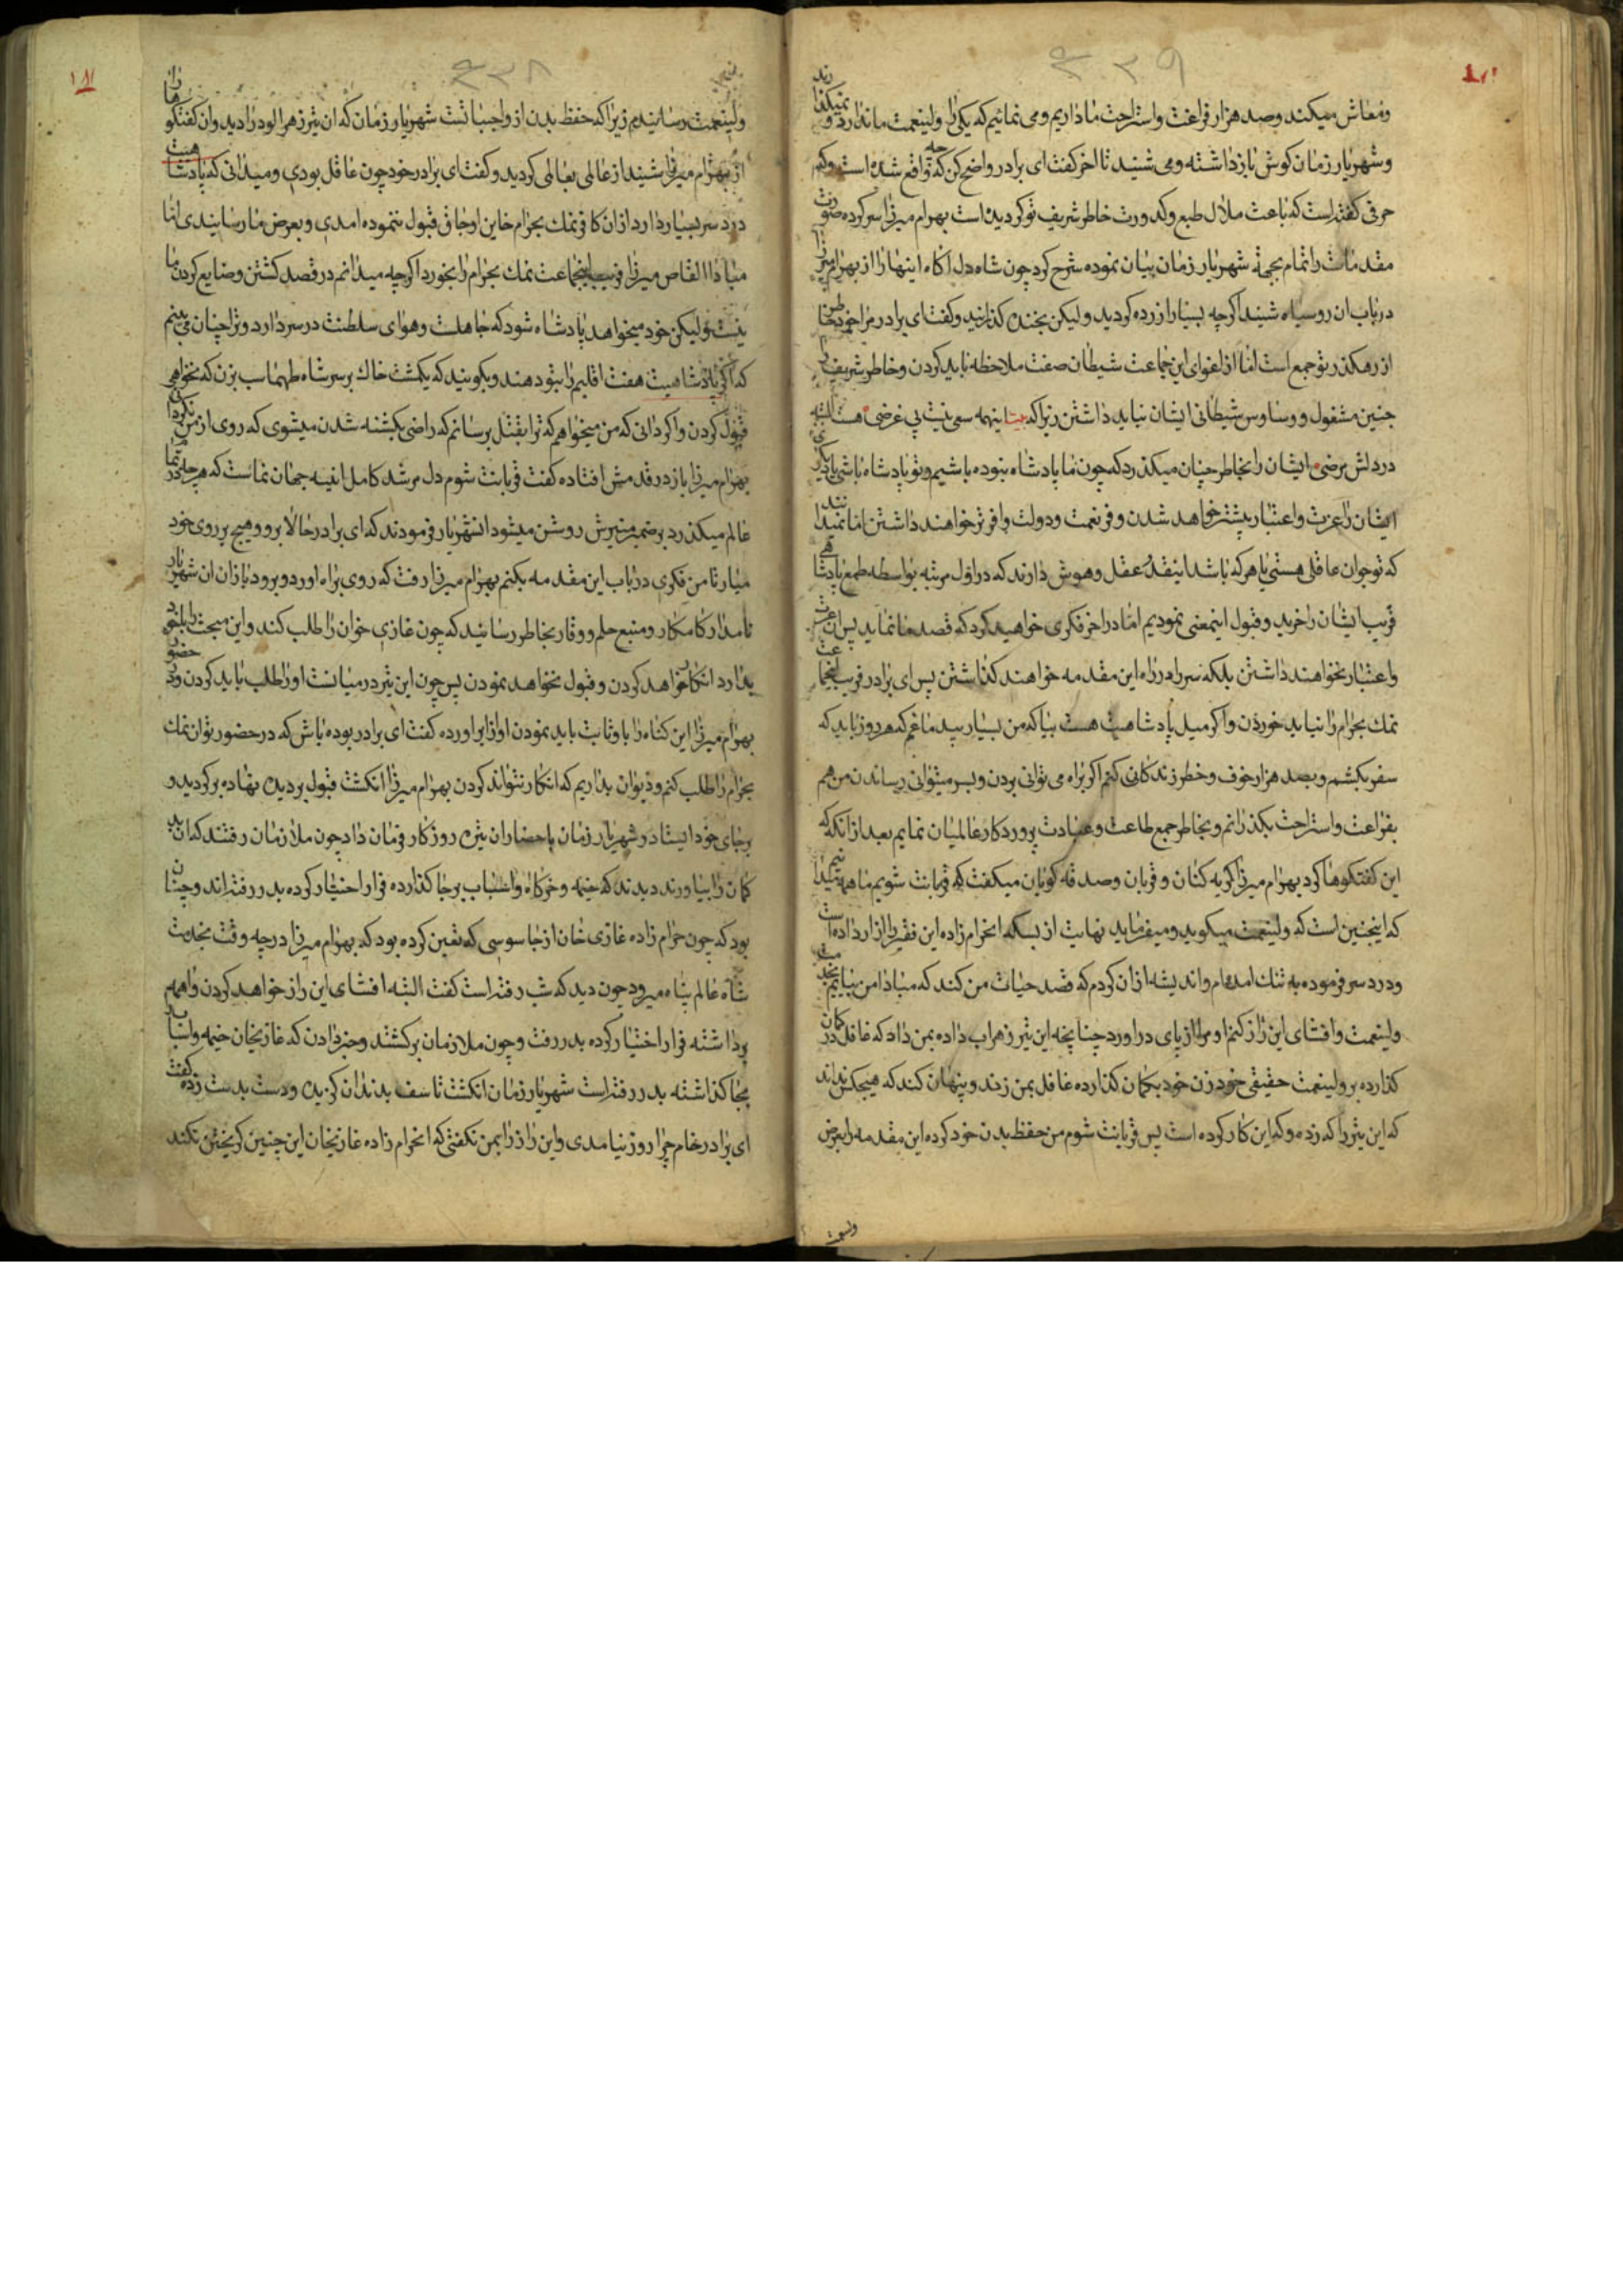 ومعاش میکند وصد هزار فراغت واستراحت ما داریم ومی نمائیم که یکی را ولینعمت ما ندارد و
وشهریار زمان کوش باز داشته ومی شنید تا اخر کفت ای برادر واضح کن که چه واقع شده است وکه
حرفی کفته است که باعث ملال طبع وکدورت خاطر شریف تو کردیده است بهرام میرزا سر کرده صورت
مقدمات را تمام بجهة شهریار زمان بیان نموده شرح کرد چون شاه دل اکاه اینها را از بهرام میرزا
در باب ان روسیاه شنید اکرچه بسیار ازرده کردید ولیکن بخنده کذرانید وکفت ای برادر مرا خود خاطر
از رهکذر تو جمع است اما از اغوای این جماعت شیطان صفت ملاحظه باید کردن وخاطر شریف را
چنین مشغول ووساوس شیطانی ایشان نباید داشتن زیرا که اینهمه سعی نیت بی غرضی هست البته
در دلش مرضی ایشان را بخاطر چنان میکذرد که چون ما پادشاه نبوده باشیم وتو پادشاه باشی
ایشان را عزت واعتبار بیشتر خواهد شدن وفر نعمت ودولت وافرتر خواهند داشتن اما نمیدانند
که تو جوان عاقلی هستی یا هر که باشد اینقدر عقل وهوش دارند که در اول مرتبه بواسطه طمع پادشاهی
فریب ایشان را خرید وقبول اینمعنی نمودیم اما در اخر فکری خواهید کرد که قصد ما نماید پس ان عزت
واعتبار نخواهند داشتن بلکه سر را در راه این مقدمه خواهند کذاشتن پس ای برادر فریب اینجماعت
نمك بحرام را نباید خوردن واکر میل پادشاهیت هست بیا که من بسیار بیدماغم که هر روز باید که
سفر بکشم وبصد هزار خوف وخطر زندکانی کنم اکر براه می توانی بردن وبسر میتوانی رساندن من هم
بفراغت واستراحت بکذرانم وبخاطر جمع طاعت وعبادت پروردکار عالمیان نمایم بعد از انکه که
این کفتکوها کرد بهرام میرزا کریه کنان وقربان وصدقه کویان میکفت که قربانت شویم ما همه میدانیم
که اینچنین است که ولینعمت میکوید ومیفرماید نهایت از بسکه انحرام زاده این فقیر را ازار داده است
ودرد سر فرموده به تنك امده ام واندیشه از ان کردم که قصد حیات من کند که مبادا من بیایم بخدمت
ولینعمت وافشای این راز کنم او مرا از پای در اورد چنانچه این تیر زهراب داده بمن داد که غافل در کمان
کذارده بر ولینعمت حقیقی خود زن خود بکمان کذارده غافل بمن زند وپنهان کند که هیچکس نداند
که این تیر را که زده وکه این کار کرده است پس قربانت شوم من حفظ بدن خود کرده این مقدمه را بعرض
ولینعمت
ولینعمت رسانیدم زیرا که حفظ بدن از واجباتست شهریار زمان که ان تیر زهرالود را دید وان کفتکوها را
از بهرام میرزا شنید از عالمی بعالمی کردید وکفت ای برادر خود چون عاقل بودی ومیدانی که پادشاهیت
درد سر بسیار دارد از ان کافر نمك بحرام خاین اوجاق قبول ننموده امدی وبعرض ما رسانیدی اما
مبادا القاص میرزا فریب اینجماعت نمك بحرام را بخورد اکرچه میدانم در قصد کشتن وضایع کردن ما
نیست ولیکن خود میخواهد پادشاه شود که جاهلست وهوای سلطنت در سر دارد وترا چنان می بینم
که اکر پادشاهیت هفت اقلیم را بتو دهند وبکویند که یکمشت خاك بر سر شاه طهماسب بزن که نخواهی
قبول کردن واکر دانی که من میخواهم که ترا بقتل برسانم که راضی بکشته شدن میشوی که روی از من نکردانی
بهرام میرزا باز در قدمش افتاده کفت قربانت شوم دل مرشد کامل ائینه جهان نماست که هر چه در تمام
عالم میکذرد بر ضمیر منیرش روشن میشود انشهریار فرمودند که ای برادر حالا برو وهیچ بر روی خود
میار تا من فکری در باب این مقدمه بکنم بهرام میرزا رفت که روی براه اورد وبرود باز ان شهریار
نامدار کامکار ومنبع حلم ووقار بخاطر رسانید که چون غازی خوان را طلب کند واین مبحث را بلند
بدارد انکار خواهد کردن وقبول نخواهد نمودن پس چون این تیر در میانست او را طلب باید کردن ودر حضور
بهرام میرزا این کناه را با او ثابت باید نمودن اواز بر اورده کفت ای برادر بوده باش که در حضور تو ان نمك
بحرام را طلب کنم ودیوان بداریم که انکار نتواند کردن بهرام میرزا انکشت قبول بر دیده نهاده بر کردید و
بر جای خود ایستاد وشهریار زمان باحضار ان تیره روزکار فرمان داد چون ملازمان رفتند که ان بد
کمان را بیاورند دیدند که خیمه وخرکاه واسباب بر جا کذارده فرار اختیار کرده بدر رفته اند وچنان
بود که چون حرام زاده غازی خان از جاسوسی که تعین کرده بود که بهرام میرزا در چه وقت بخدمت
شاه عالم پناه میرود چون دید که شب رفته است کفت البته افشای این راز خواهد کردن واهمه
برداشته فرار اختیار کرده بدر رفت وچون ملازمان برکشتند وخبر دادن که غازیخان خیمه واسباب
بجا کذاشته بدر رفته است شهریار زمان انکشت تاسف بدندان کزیده ودست بدست زده کفت
ای برادر خام چرا روز نیامدی واین راز را بمن نکفتی که انحرام زاده غازیخان این چنین کریختن نکند